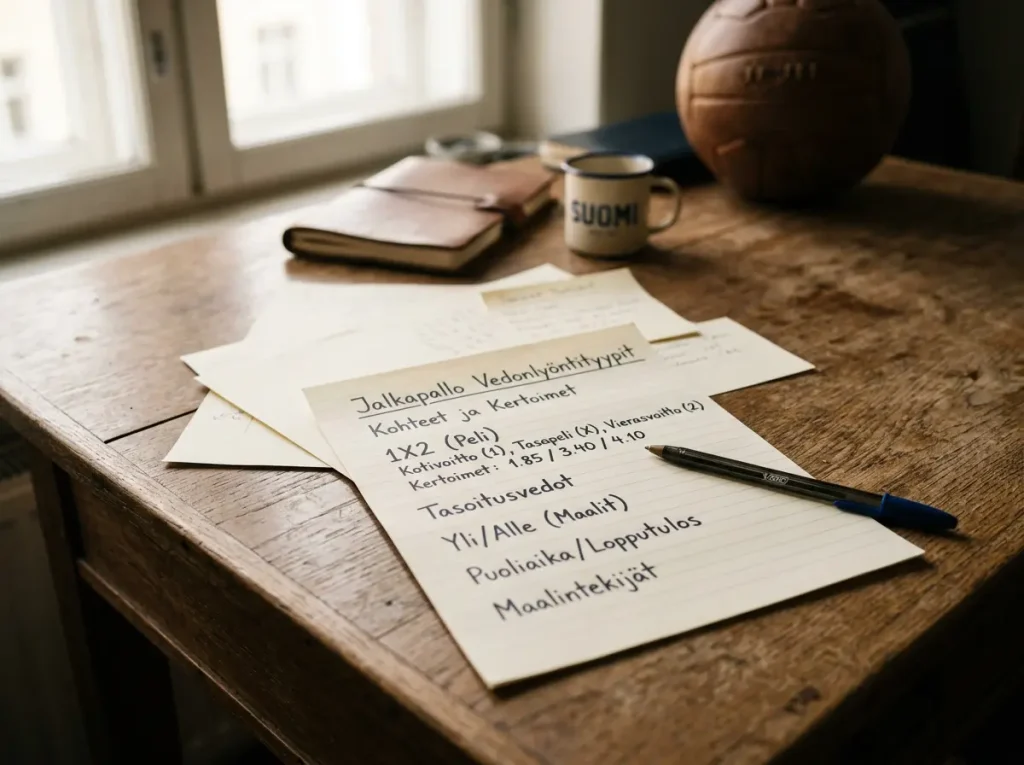 SUOMI
Jalkapallo Vedonlyöntityypit
Kohteet ja Kertoimet
1X2 (Peli)
Kotivoitto (1), Tasapeli (X), Vierasvoitto (2)
Kertoimet: 1.85 / 3.40 / 4.10
Tasoitusvedot
Yli/Alle (Maalit)
Puoliaika/Lopputulos
Maalintekijät